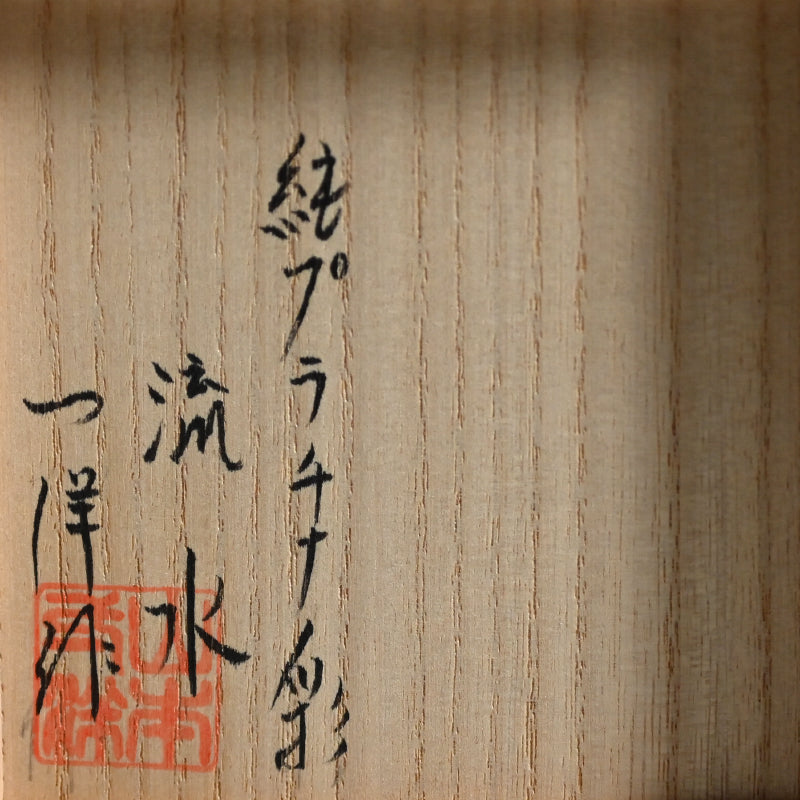 純プラチナ彩
流水
一洋作